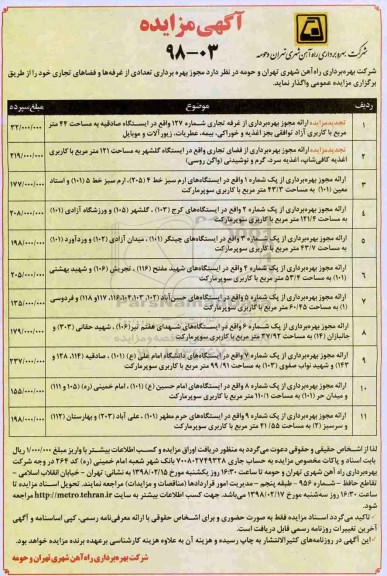 آگهی مزایده
۹۸-۰۳
شرکت بهره‌برداری راه‌آهن شهری تهران و حومه
شرکت بهره‌برداری راه‌آهن شهری تهران و حومه در نظر دارد مجوز بهره برداری تعدادی از غرفه‌ها و فضاهای تجاری خود را از طریق
برگزاری مزایده عمومی واگذار نماید.
ردیف موضوع مبلغ سپرده
۱ تجدیدمزایده ارائه مجوز بهره‌برداری از غرفه تجاری شماره ۱۲۷ واقع در ایستگاه صادقیه به مساحت ۴۴ متر ۳۲/۰۰۰/۰۰۰
مربع با کاربری آزاد توافقی بجز اغذیه و خوراکی، بیمه، عطریات، زیورآلات و موبایل
۲ تجدیدمزایده ارائه مجوز بهره‌برداری از فضای تجاری واقع در ایستگاه گلشهر به مساحت ۱۲۱ متر مربع با کاربری ۲۱۹/۰۰۰/۰۰۰
اغذیه کافی‌شاپ، اغذیه سرد، گرم و نوشیدنی (واگن روسی)
۳ ارائه مجوز بهره‌برداری از پک شماره ۱ واقع در ایستگاه‌های ارم سبز خط ۴ (۲۰۵)، ارم سبز خط ۵ (۱۰۱) و استاد ۱۷۷/۰۰۰/۰۰۰
معین (۱۰۱) به مساحت ۴۳/۳ متر مربع با کاربری سوپرمارکت
۴ ارائه مجوز بهره‌برداری از پک شماره ۲ واقع در ایستگاه‌های کرج (۱۰۳)، گلشهر (۱۰۵) و ورزشگاه آزادی (۱۰۱) ۲۰۸/۰۰۰/۰۰۰
به مساحت ۱۲۱/۴ متر مربع با کاربری سوپرمارکت
۵ ارائه مجوز بهره‌برداری از پک شماره ۳ واقع در ایستگاه‌های چیتگر (۱۰۱)، میدان آزادی (۱۰۲) و وردآورد (۱۰۱) ۱۹۸/۰۰۰/۰۰۰
به مساحت ۴۳/۷ متر مربع با کاربری سوپرمارکت
۶ ارائه مجوز بهره‌برداری از پک شماره ۴ واقع در ایستگاه‌های شهید مفتح (۱۱۶)، تجریش (۱۰۶) و شهید بهشتی ۲۰۵/۰۰۰/۰۰۰
(۱۰۱) به مساحت ۵۳/۴ متر مربع با کاربری سوپرمارکت
۷ ارائه مجوز بهره‌برداری از پک شماره ۵ واقع در ایستگاه‌های حسن‌آباد (۱۰۲، ۱۰۳، ۱۱۶، ۱۱۷و ۱۱۸) و فردوسی ۱۳۵/۰۰۰/۰۰۰
(۱) به مساحت ۶۰/۴۵ متر مربع با کاربری سوپرمارکت
۸ ارائه مجوز بهره‌برداری از پک شماره ۶ واقع در ایستگاه‌های شهدای هفتم تیر(۱۰۶)، شهید حقانی (۳۰۳) و ۱۷۹/۰۰۰/۰۰۰
جانبازان (۱۴) به مساحت ۳۷/۹۲ متر مربع با کاربری سوپرمارکت
۹ ارائه مجوز بهره‌برداری از پک شماره ۷ واقع در ایستگاه‌های دانشگاه امام علی (ع) (۱۰۱)، صادقیه (۱۱۴، ۱۲۸ و ۲۳۷/۰۰۰/۰۰۰
۱۴۳) و شهید نواب صفوی (۱۰۳) به مساحت ۹۹/۹۱ متر مربع با کاربری سوپرمارکت
۱۰ ارائه مجوز بهره‌برداری از پک شماره ۸ واقع در ایستگاه‌های امام حسین (ع) (۱۰۱)، امام خمینی (ره) (۱۰۵ و ۱۱۱) ۱۵۵/۰۰۰/۰۰۰
و میدان حر (۱۰۱) به مساحت ۱۱۰/۱ متر مربع با کاربری سوپرمارکت
۱۱ ارائه مجوز بهره‌برداری از پک شماره ۹ واقع در ایستگاه‌های حرم مطهر (۱۰۱)، علی آباد (۲۰۳) و بهارستان (۱۱۲) ۱۹۸/۰۰۰/۰۰۰
و سرسبز (۲) به مساحت ۴۱/۵۵ متر مربع با کاربری سوپرمارکت
لذا از اشخاص حقیقی و حقوقی دعوت می‌گردد به منظور دریافت اوراق مزایده و کسب اطلاعات بیشتر با واریز مبلغ ۱/۰۰۰/۰۰۰ ریال
بابت اسناد و پاکات مخصوص مزایده به حساب جاری ۷۰۰۸۰۲۷۴۹۳۲۸ بانک شهر شعبه امام خمینی (ره) کد ۲۶۴ در وجه شرکت
بهره‌برداری راه آهن شهری تهران و حومه تا ساعت ۱۶:۳۰ روز یکشنبه مورخ ۱۳۹۸/۰۲/۱۵ به نشانی: تهران - خیابان انقلاب اسلامی -
تقاطع حافظ - شماره ۹۵۶ - طبقه پنجم - مدیریت امور قراردادها (مناقصات و مزایدات) مراجعه نمایند. تحویل اسناد مزایده تا
ساعت ۱۶:۳۰ روز سه‌شنبه مورخ ۱۳۹۸/۰۲/۱۷ می‌باشد. جهت کسب اطلاعات بیشتر به سایت http://metro.tehran.ir مراجعه
شود.
تاکید می‌گردد اسناد مزایده فقط به صورت حضوری و برای اشخاص حقوقی با ارائه معرفی‌نامه رسمی، کپی اساسنامه و آگهی
آخرین تغییرات روزنامه رسمی قابل دریافت است.
این آگهی در روزنامه‌های کثیرالانتشار به چاپ رسیده و هزینه آن به علاوه هزینه کارشناسی برعهده برنده مزایده خواهد بود.
شرکت بهره‌برداری راه‌آهن شهری تهران و حومه